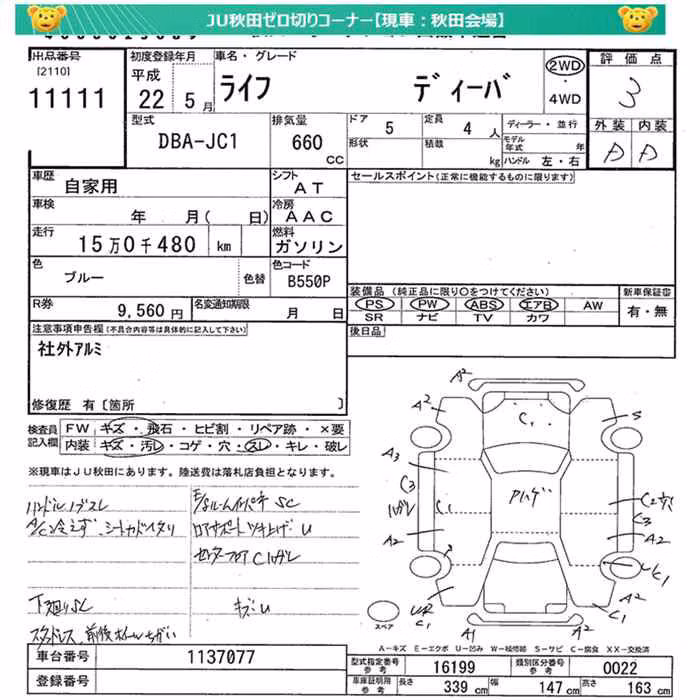 JU秋田ゼロ切りコーナー【現車：秋田会場】
出品番号 初度登録年月 車名・グレード 評価点
[2110] 平成 ライフ ディーバ 2WD
11111 22 5月 ・4WD 3
型式 排気量 ドア 5 定員 4人 ディーラー・並行 外装 内装
DBA-JC1 660 CC 形状 積載 kg モデル年式 年
ハンドル 左・右
車歴 自家用 シフト AT セールスポイント(正常に機能するものに限ります)
車検 年 月( 日) 冷房 AAC
走行 15万0千480 km 燃料 ガソリン
色 ブルー 色替 色コード B550P
装備品 (純正品に限り○をつけてください) 新車保証書
R券 9,560円 名変通知期限 月 日 PS PW ABS エアB AW 有・無
SR ナビ TV カワ
注意事項申告欄(不具合内容等は具体的に記入して下さい) 後日品
社外アルミ
修復歴 有[箇所 ]
検査員 FW キズ・飛石・ヒビ割・リペア跡・×要
記入欄 内装 キズ・汚レ・コゲ・穴・スレ・キレ・破レ
※現車はJU秋田にあります。陸送費は落札店負担となります。
A2
A2 C1 S
A3
C3 C1 C2穴
C3
A2 A2
C1
A2
UR
C1 A1 A2 C1
ハンドルノブスレ
A/C冷えず
下廻りSC キズU
スペア
A－キズ E－エクボ U－凹み W－補修跡 S－サビ C－腐食 XX－交換済
車台番号 1137077 型式指定番号 参考 16199 類別区分番号 参考 0022
登録番号 車庫証明用 参考 長さ 339 cm 幅 147 cm 高さ 163 cm